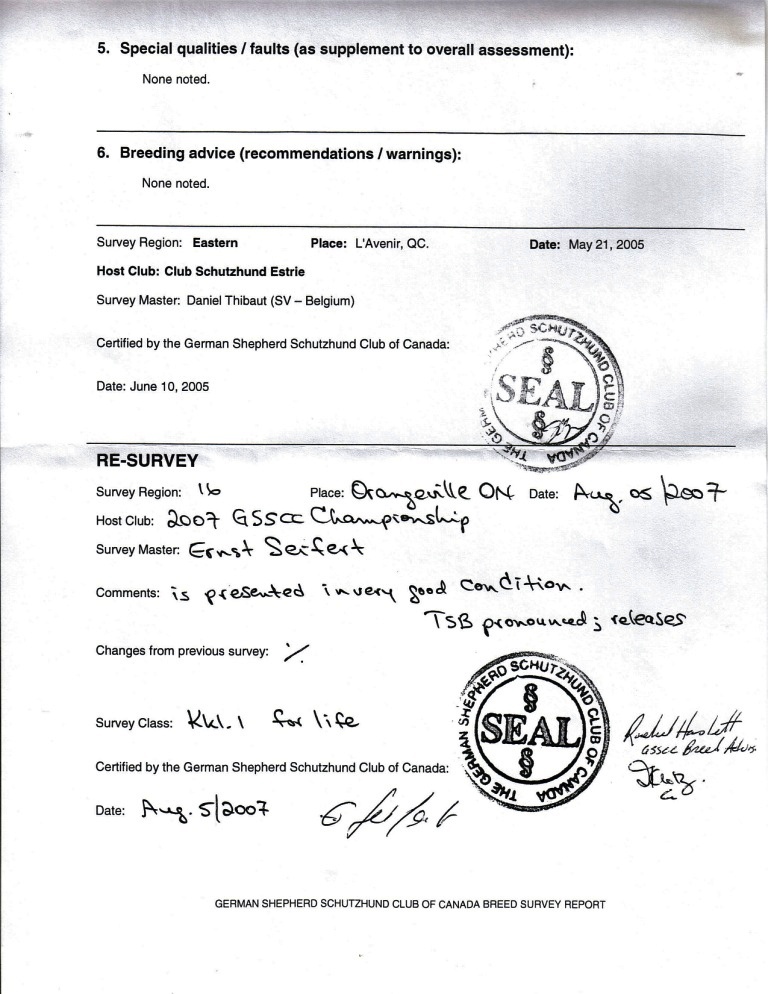 5. Special qualities / faults (as supplement to overall assessment):
None noted.
6. Breeding advice (recommendations / warnings):
None noted.
Survey Region: Eastern Place: L'Avenir, QC. Date: May 21, 2005
Host Club: Club Schutzhund Estrie
Survey Master: Daniel Thibaut (SV – Belgium)
Certified by the German Shepherd Schutzhund Club of Canada:
THE GERM HERD SCHUTZHUND CLUB OF CANADA
SEAL
Date: June 10, 2005
RE-SURVEY
Survey Region: 16 Place: Orangeville ON Date: Aug. 05/2007
Host Club: 2007 GSSCC Championship
Survey Master: Ernst Seifert
Comments: is presented in very good condition.
TSB pronounced; releases
Changes from previous survey: ./.
THE GERMAN SHEPHERD SCHUTZHUND CLUB OF CANADA
SEAL
Survey Class: Kkl.1 for life
Rachel Haslett
GSSCC Breed Advis
Certified by the German Shepherd Schutzhund Club of Canada:
Date: Aug. 5/2007
GERMAN SHEPHERD SCHUTZHUND CLUB OF CANADA BREED SURVEY REPORT